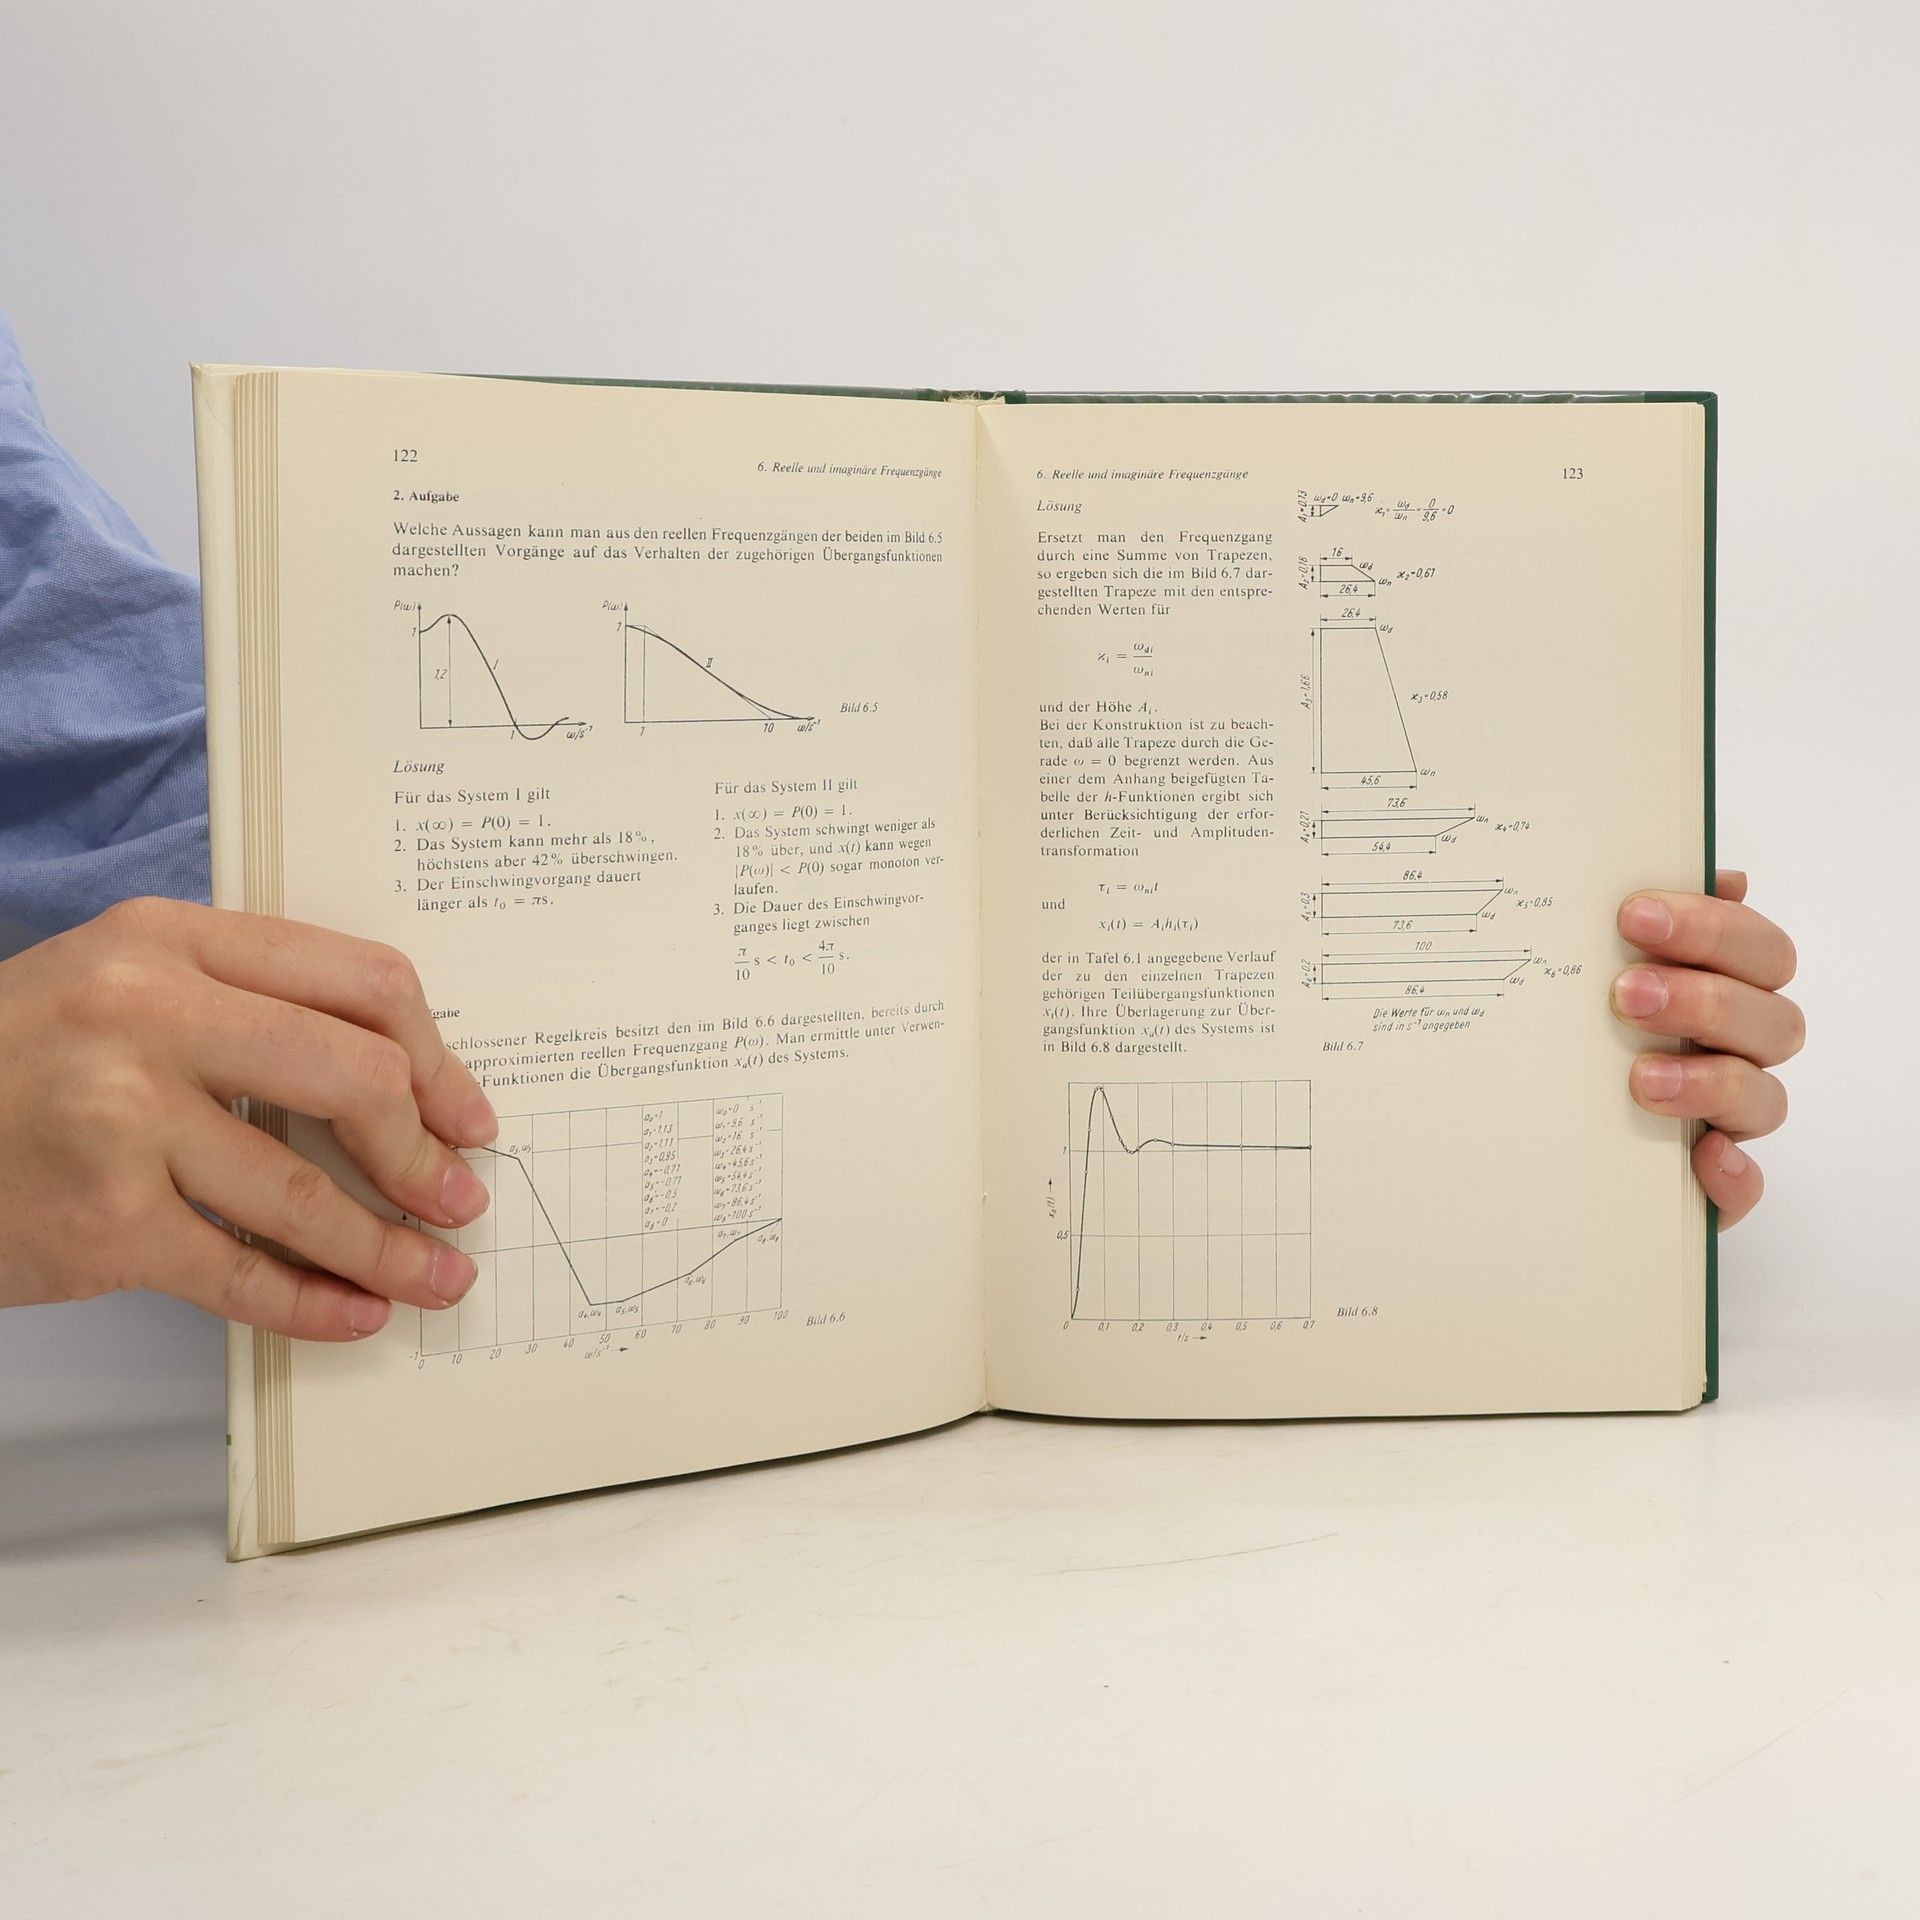 122
6. Reelle und imaginäre Frequenzgänge
2. Aufgabe
Welche Aussagen kann man aus den reellen Frequenzgängen der beiden im Bild 6.5
dargestellten Vorgänge auf das Verhalten der zugehörigen Übergangsfunktionen
machen?
P(ω)
1
1,2
I
1
ω/s⁻¹
P(ω)
1
II
1
10
ω/s⁻¹
Bild 6.5
Lösung
Für das System I gilt
1. x(∞) = P(0) = 1.
2. Das System kann mehr als 18%,
höchstens aber 42% überschwingen.
3. Der Einschwingvorgang dauert
länger als t₀ = πs.
Für das System II gilt
1. x(∞) = P(0) = 1.
2. Das System schwingt weniger als
18% über, und x(t) kann wegen
|P(ω)| < P(0) sogar monoton ver-
laufen.
3. Die Dauer des Einschwingvor-
ganges liegt zwischen
π/10 s < t₀ < 4π/10 s.
gabe
schlossener Regelkreis besitzt den im Bild 6.6 dargestellten, bereits durch
approximierten reellen Frequenzgang P(ω). Man ermittle unter Verwen-
-Funktionen die Übergangsfunktion xₐ(t) des Systems.
a₀=1 ω₀=0 s⁻¹
a₁=1,13 ω₁=9,6 s⁻¹
a₂=1,11 ω₂=16 s⁻¹
a₃=0,95 ω₃=26,4 s⁻¹
a₄=-0,71 ω₄=45,6 s⁻¹
a₅=-0,71 ω₅=54,4 s⁻¹
a₆=-0,5 ω₆=73,6 s⁻¹
a₇=-0,2 ω₇=86,4 s⁻¹
a₈=0 ω₈=100 s⁻¹
a₃,ω₃
a₄,ω₄
a₅,ω₅
a₆,ω₆
a₇,ω₇
a₈,ω₈
-1
0 10 20 30 40 50 60 70 80 90 100
ω/s⁻¹
Bild 6.6
6. Reelle und imaginäre Frequenzgänge
123
Lösung
Ersetzt man den Frequenzgang
durch eine Summe von Trapezen,
so ergeben sich die im Bild 6.7 dar-
gestellten Trapeze mit den entspre-
chenden Werten für
ϰᵢ = ω_di/ω_ni
und der Höhe Aᵢ.
Bei der Konstruktion ist zu beach-
ten, daß alle Trapeze durch die Ge-
rade ω = 0 begrenzt werden. Aus
einer dem Anhang beigefügten Ta-
belle der h-Funktionen ergibt sich
unter Berücksichtigung der erfor-
derlichen Zeit- und Amplituden-
transformation
τᵢ = ω_ni t
und
xᵢ(t) = Aᵢhᵢ(τᵢ)
der in Tafel 6.1 angegebene Verlauf
der zu den einzelnen Trapezen
gehörigen Teilübergangsfunktionen
xᵢ(t). Ihre Überlagerung zur Über-
gangsfunktion xₐ(t) des Systems ist
in Bild 6.8 dargestellt.
A₁=0,13 ω_d=0 ω_n=9,6 ϰ₁=ω_d/ω_n=0/9,6=0
A₂=0,16 16 ω_d ω_n 26,4 ϰ₂=0,61
26,4 ω_d
A₃=1,66 ϰ₃=0,58
45,6 ω_n
73,6 ω_n
A₄=0,21 ω_d 54,4 ϰ₄=0,74
86,4 ω_n
A₅=0,3 ω_d 73,6 ϰ₅=0,85
100 ω_n
A₆=0,2 ω_d 86,4 ϰ₆=0,86
Die Werte für ω_n und ω_d
sind in s⁻¹ angegeben
Bild 6.7
1
xₐ(t)
0,5
0 0,1 0,2 0,3 0,4 0,5 0,6 0,7
t/s
Bild 6.8